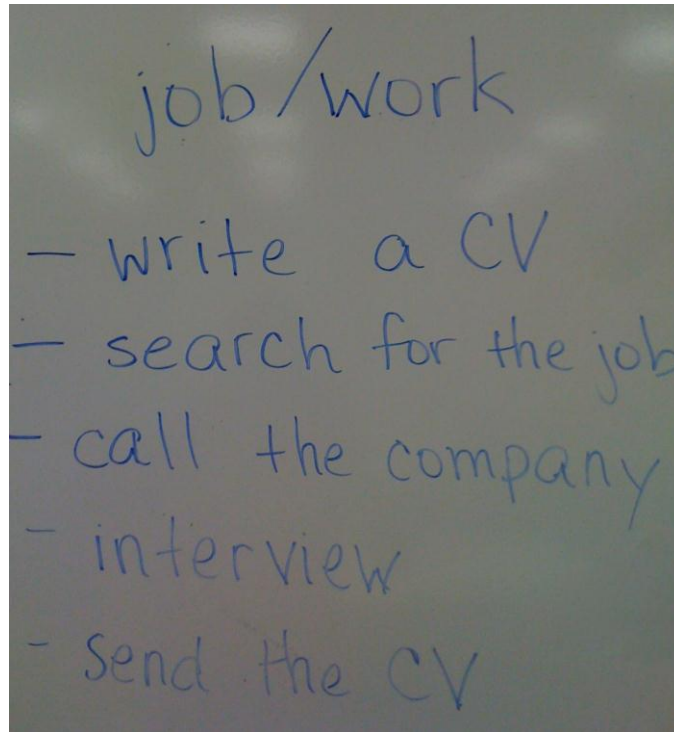 job/work
- write a CV
- search for the job
- call the company
- interview
- send the CV